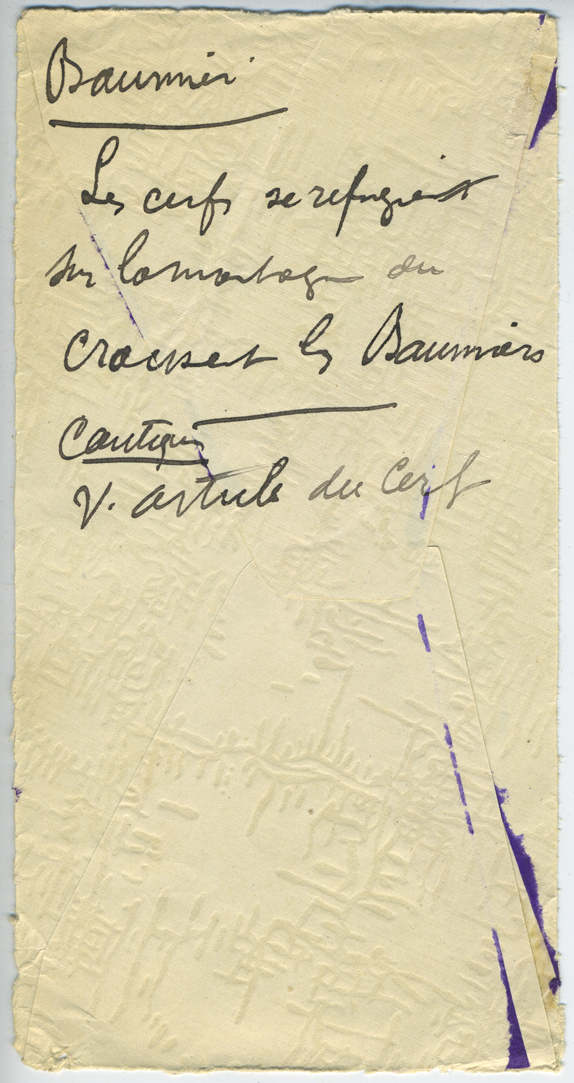 Baumier
Les cerfs se refugient
sur la montagne ou
croissent les Baumiers
Cantique
V. article du Cerf